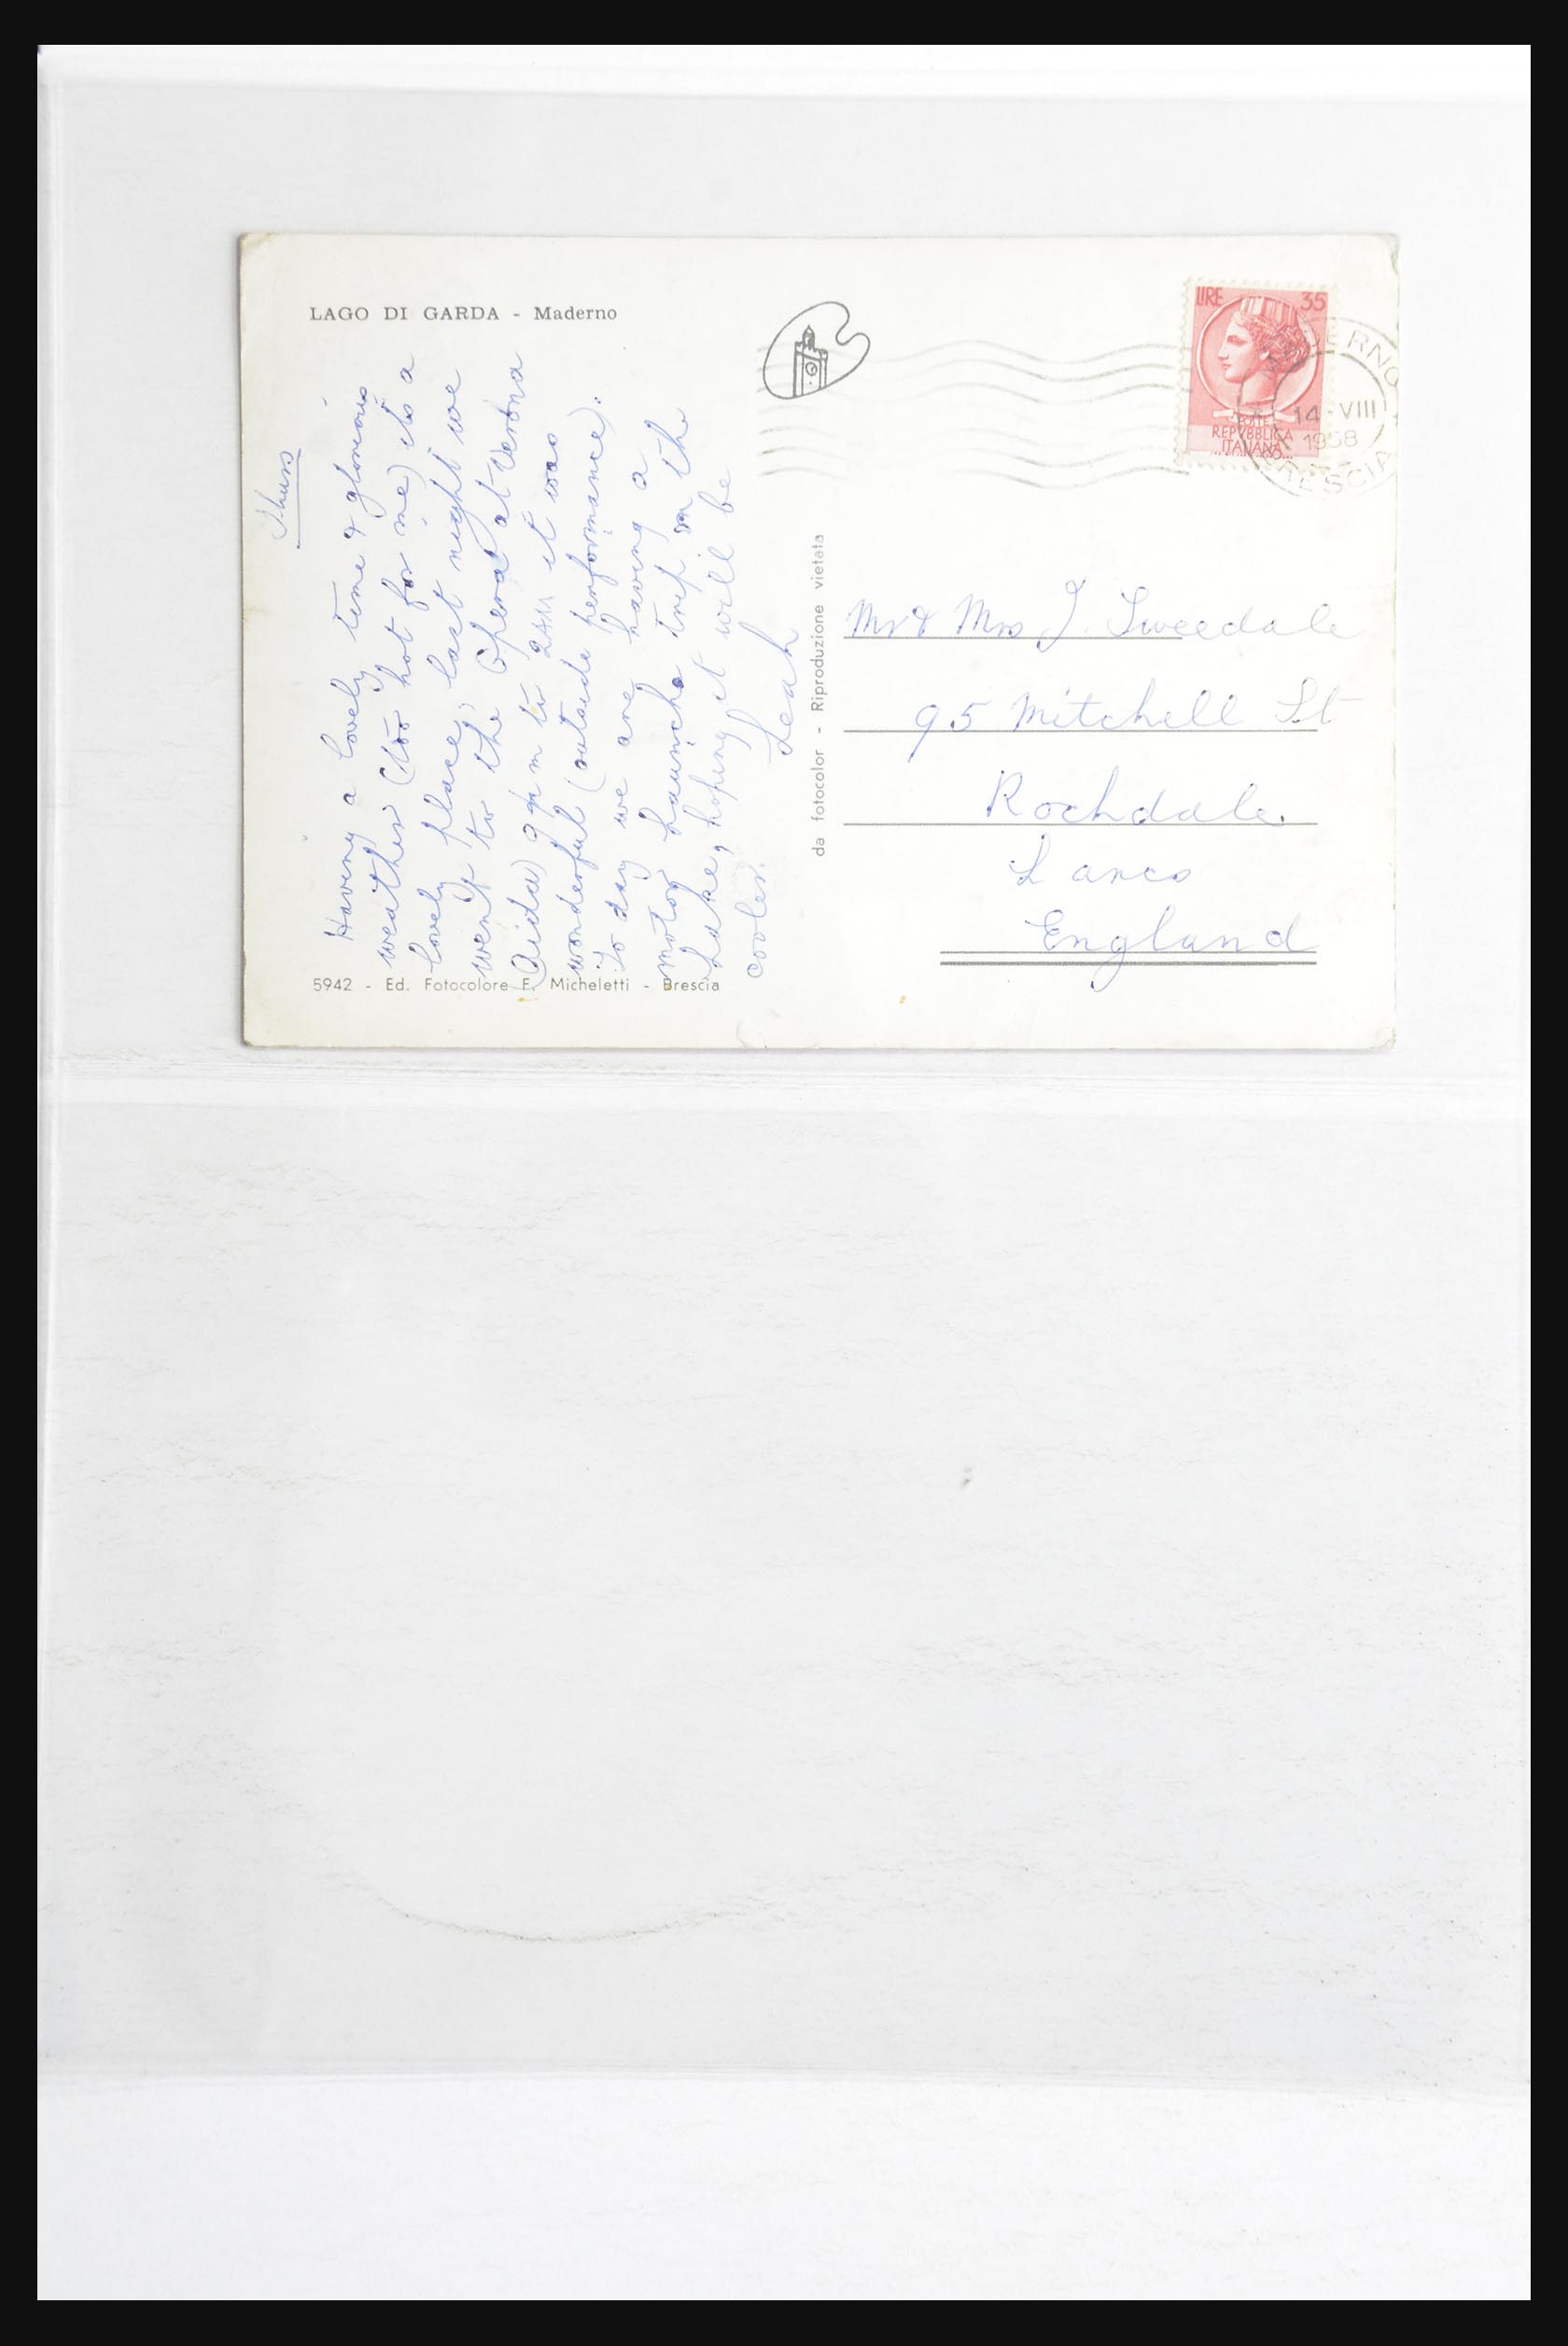 LAGO DI GARDA - Maderno
Thurs
Having a lovely time & glorious
weather (too hot for me) its a
lovely place, last night we
went to the Opera at Verona
(Aida) 9 pm to 2am it was
wonderful (outside performance).
to day we are having a
motor Launche trip on the
Lake, hoping it will be
cooler.
Leah
5942 - Ed. Fotocolore F. Micheletti - Brescia
da fotocolor - Riproduzione vietata
LIRE 35
POSTE
REPVBBLICA
ITALIANA
MADERNO
14-VIII
1958
BRESCIA
Mr & Mrs J. Tweedale
95 Mitchell St
Rochdale.
Lancs
England